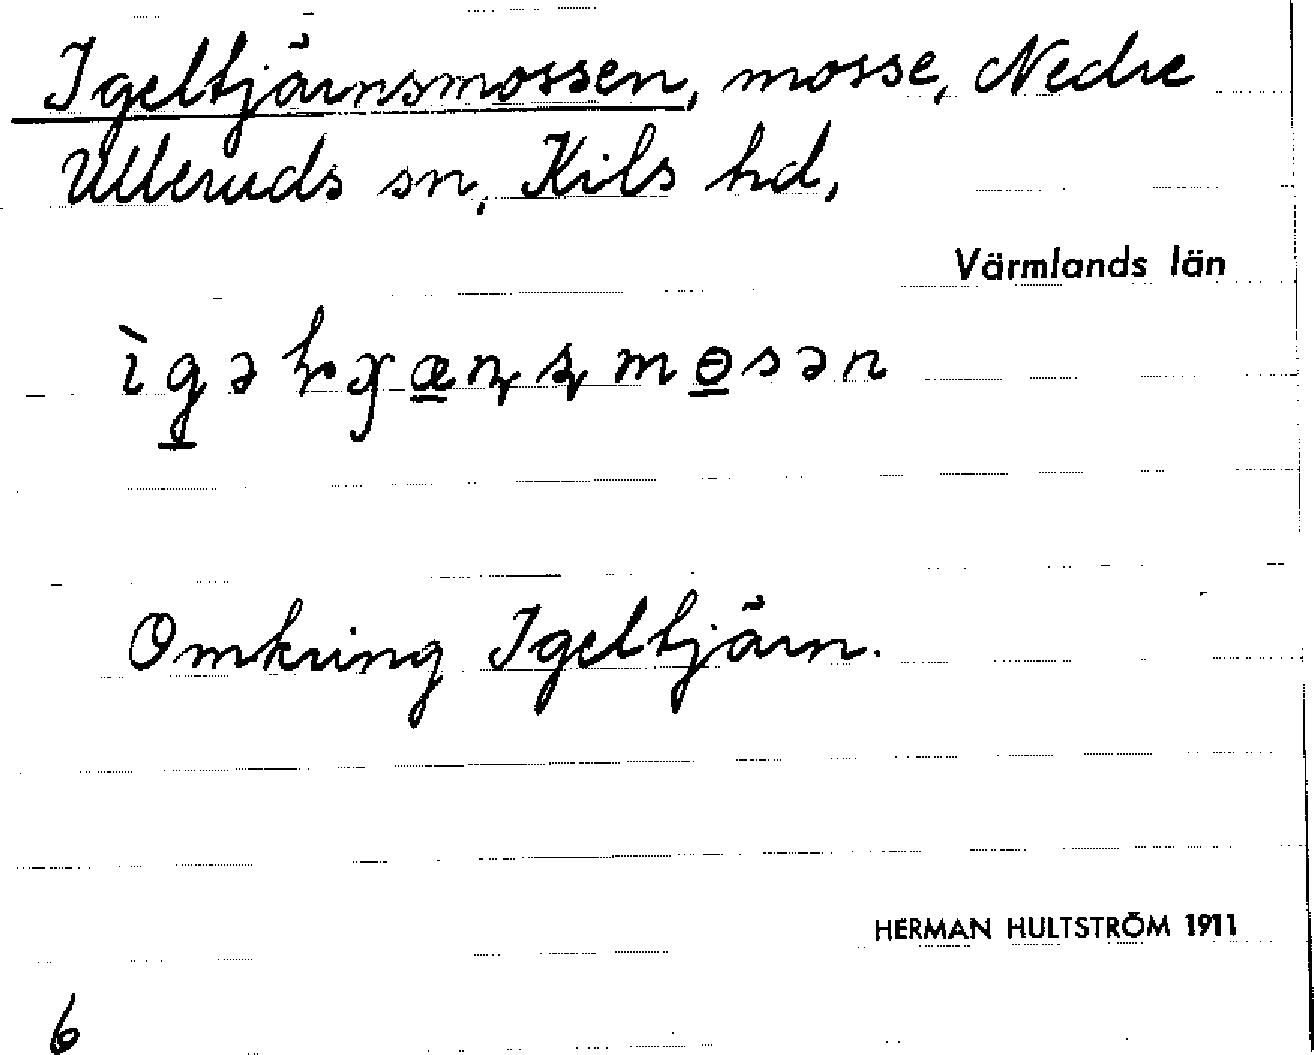 Igeltjärnsmossen, mosse, Nedre
Ulleruds sn, Kils hd,
Värmlands län
Omkring Igeltjärn.
HERMAN HULTSTRÖM 1911
6